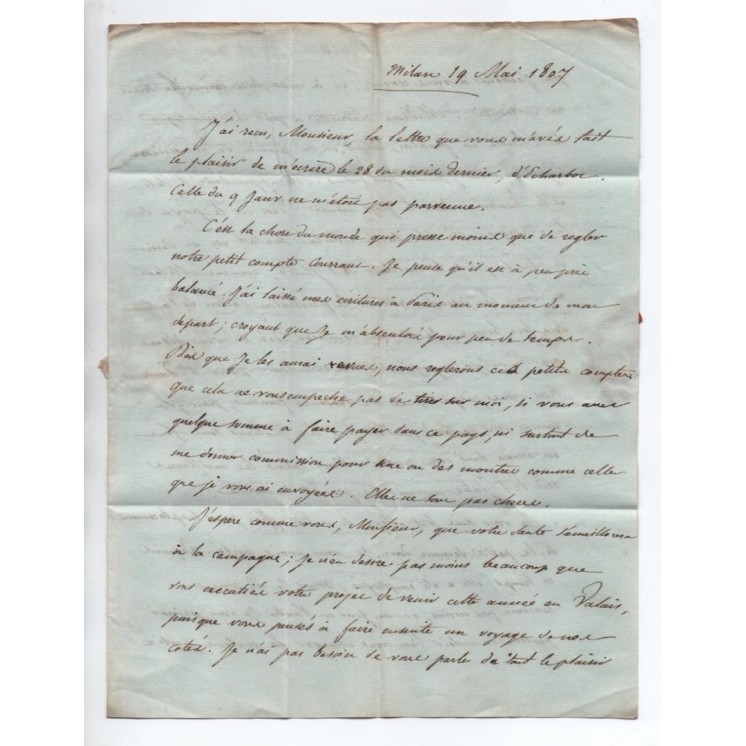 Milan 19 Mai 1807
J'ai recu, Monsieur, la lettre que vous m'avés fait
le plaisir de m'ecrire le 28 du mois dernier, d'Echarbot.
Celle du 9 Janv ne m'étoit pas parvenue.
C'est la chose du monde qui presse moins que de regler
notre petit compte courrant. Je pense qu'il est à peu près
balancé. J'ai laissé mes ecritures à Paris au moment de mon
depart; croyant que je m'absentois pour peu de temps.
Dès que Je les aurai revues, nous reglerons cette petite compte
que cela ne vous empeche pas de tirer sur moi, si vous avez
quelque somme à faire payer dans ce pays, ni surtout de
me donner commission pour une ou des montres comme celle
que je vous ai envoyée. Elles ne sont pas cheres.
J'espere comme vous, Monsieur, que votre santé s'ameillorera
à la campagne; je n'en desire pas moins beaucoup que
vous executiés votre projet de venir cette année en Valais,
puisque vous pensés à faire ensuite un voyage de nos
cotés. Je n'ai pas besoin de vous parler de tout le plaisir